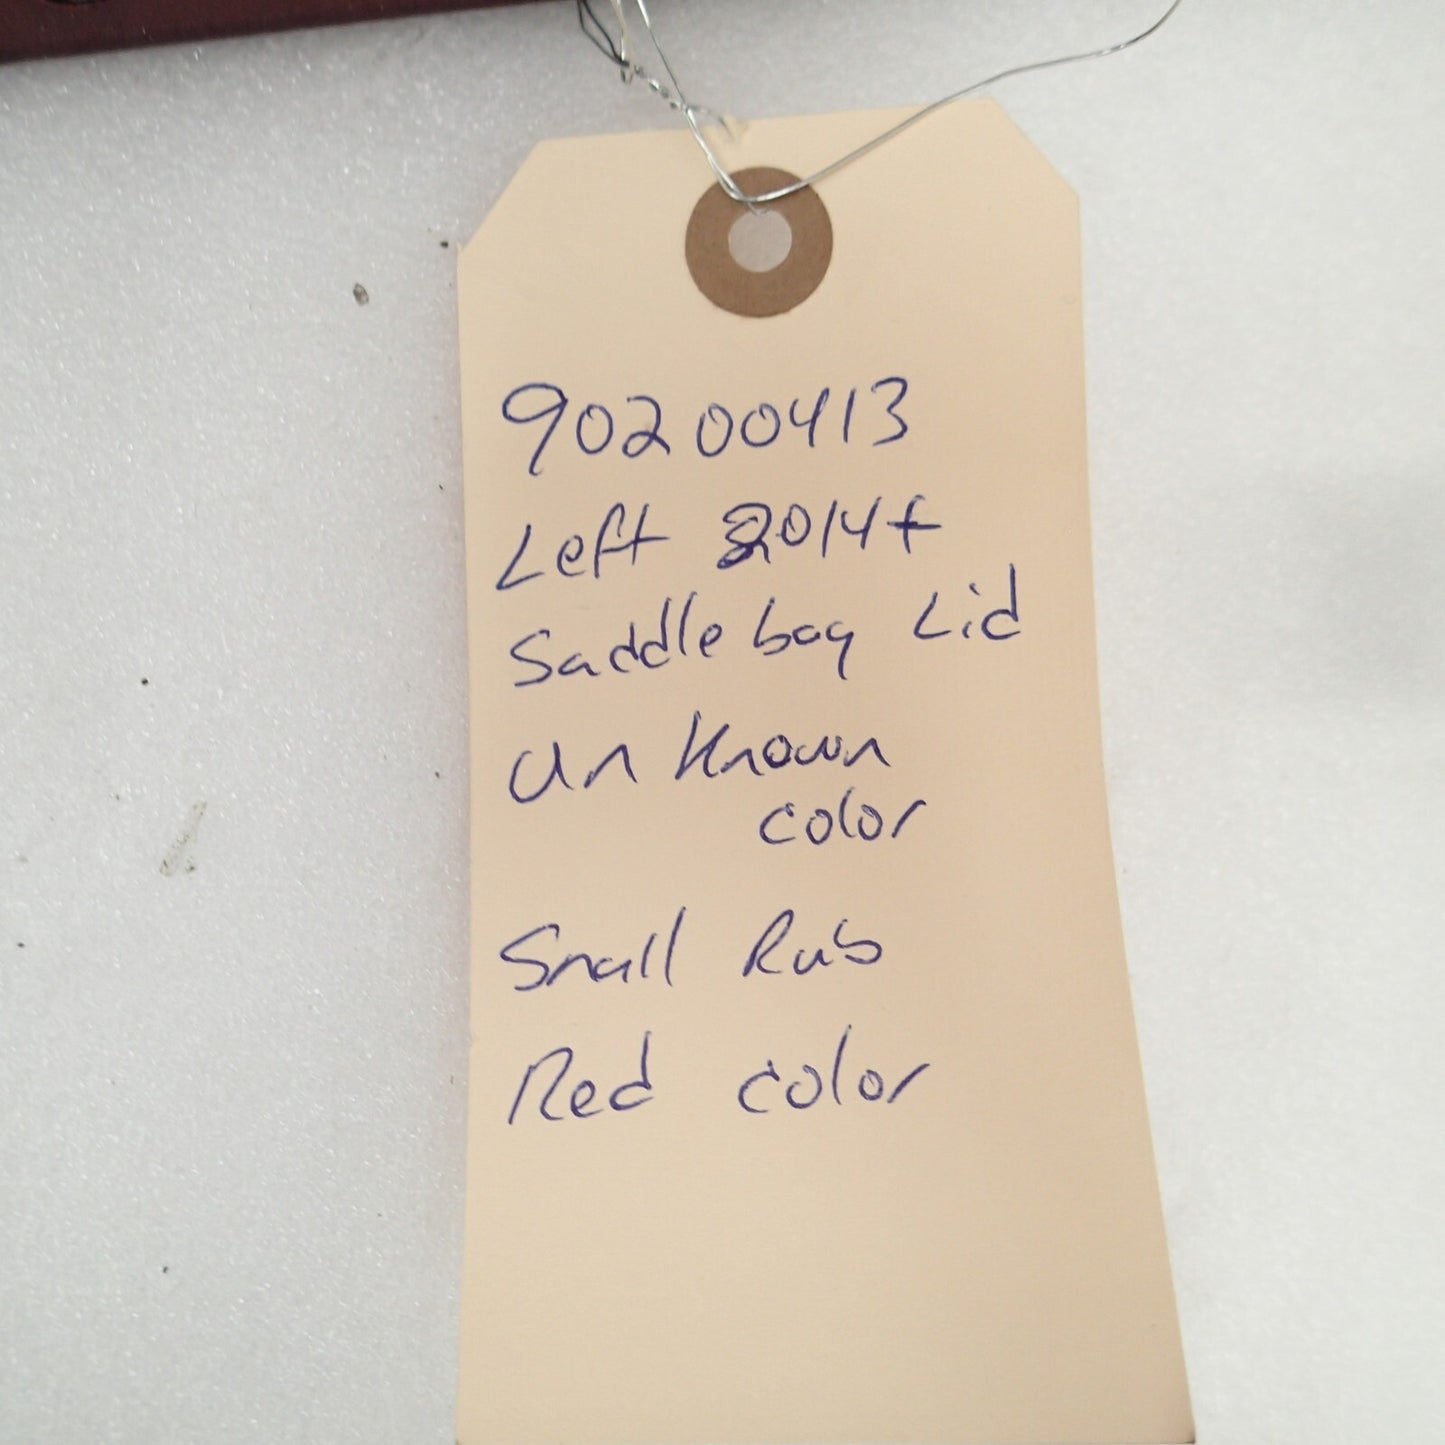 90200413
Left 2014+
Saddle bag Lid
Unknown
color
Small Rub
Red color